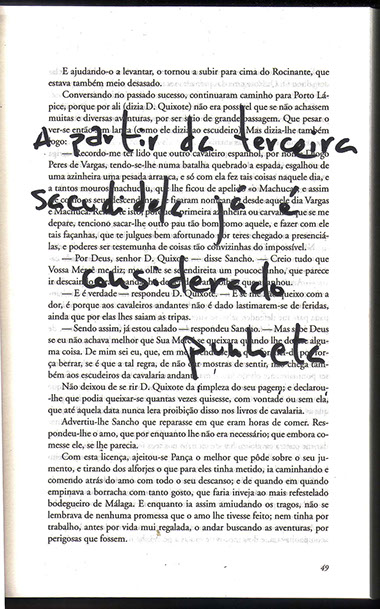 E ajudando-o a levantar, o tornou a subir para cima do Rocinante, que
estava também meio desasado.
Conversando no passado sucesso, continuaram caminho para Porto Lá-
pice, porque por ali (dizia D. Quixote) não era possível que se não achassem
muitas e diversas aventuras, por ser sítio de grande passagem. Que pesar o
ver-se então sem lança (como ele dizia ao escudeiro). Mas dizia-lhe também
logo:
A partir da terceira
— Recordo-me ter lido que outro cavaleiro espanhol, por nome Diogo
Peres de Vargas, tendo-se-lhe numa batalha quebrado a espada, esgalhou de
uma azinheira uma pesada arranca, e só com ela fez tais coisas naquele dia, e
a tantos mouros machucou, que lhe ficou de apelido o Machuca, e assim
sacudidela já é
ele como os seus descendentes se ficaram nomeando desde aquele dia Vargas
e Machuca.
primeira azinheira ou carvalho que se me
depare, tenciono sacar-lhe outro pau tão bom como aquele, e fazer com ele
tais façanhas, que te julgues bem afortunado por teres chegado a presenciá-
las, e poderes ser testemunha de coisas tão convizinhas do impossível.
— Por Deus, senhor D. Quixote — disse Sancho. — Creio tudo que
Vossa Mercê me diz; mas olhe se se endireita um poucochinho, que parece
ir descaindo
considerada
— E é verdade — respondeu D. Quixote. — E se me não queixo com a
dor, é porque aos cavaleiros andantes não é dado lastimarem-se de feridas,
ainda que por elas lhes saiam as tripas.
— Sendo assim, já estou calado — respondeu Sancho. — Mas sabe Deus
se eu não achava melhor que Sua Mercê se queixara quando lhe doesse algu-
ma coisa. De mim sei eu, que, em me doendo
punheta
ça berrar, se é que a tal regra, de não dar mostras de sentir, não chega tam-
bém aos escudeiros da cavalaria andante.
Não deixou de se rir D. Quixote da simpleza do seu pagem; e declarou-
-lhe que podia queixar-se quantas vezes quisesse, com vontade ou sem ela,
que até àquela data nunca lera proibição disso nos livros de cavalaria.
Advertiu-lhe Sancho que reparasse em que eram horas de comer. Res-
pondeu-lhe o amo, que por enquanto lhe não era necessário; que embora co-
messe ele, se lhe parecia.
Com esta licença, ajeitou-se Pança o melhor que pôde sobre o seu ju-
mento, e tirando dos alforjes o que para eles tinha metido, ia caminhando e
comendo atrás do amo com todo o seu descanso; e de quando em quando
empinava a borracha com tanto gosto, que faria inveja ao mais refestelado
bodegueiro de Málaga. E enquanto ia assim amiudando os tragos, não se
lembrava de nenhuma promessa que o amo lhe tivesse feito; nem tinha por
trabalho, antes por vida mui regalada, o andar buscando as aventuras, por
perigosas que fossem.
49